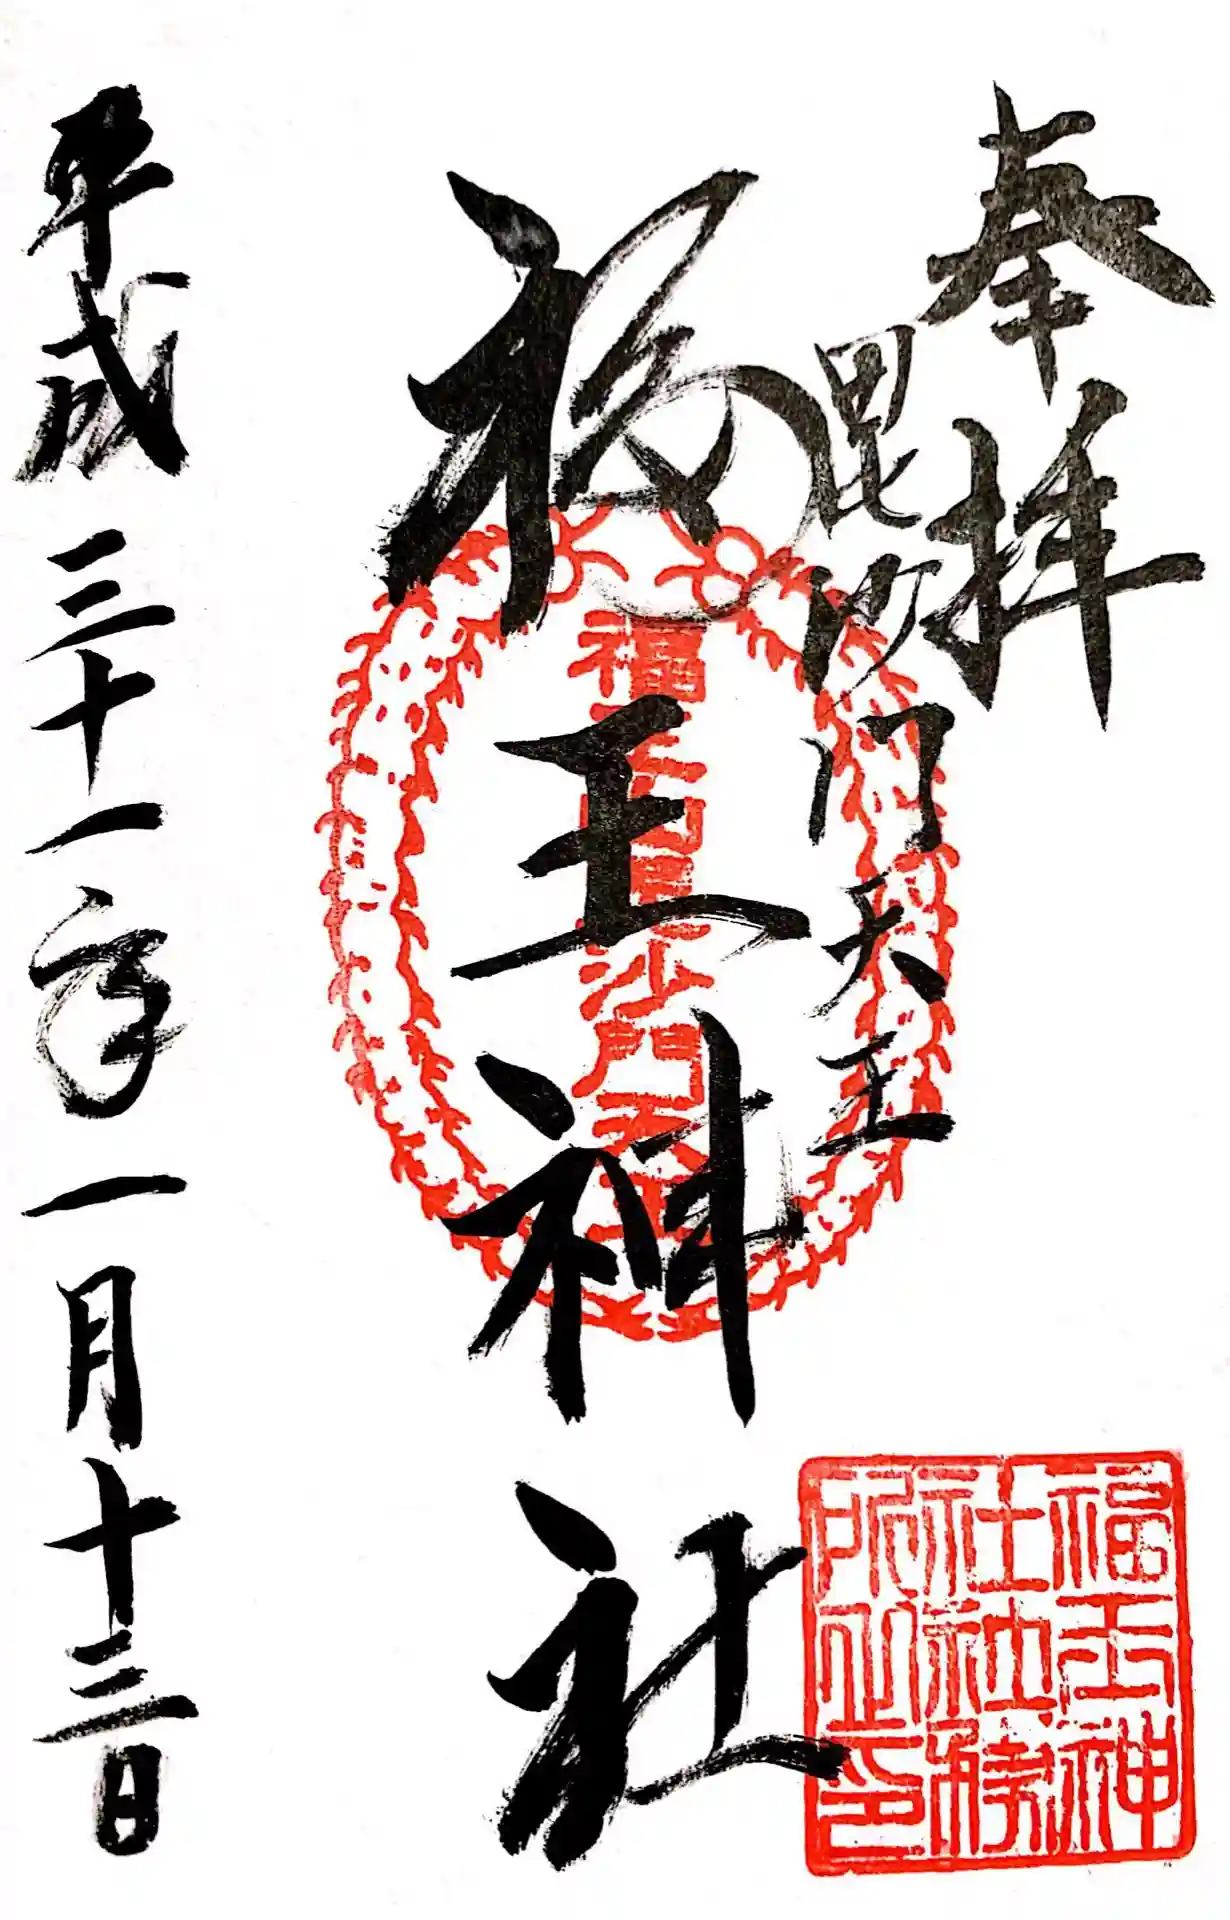 奉拝
毘沙門天王
福王神社
福王山毘沙門天王
福王神
社社務
所之印
平成三十一年一月十三日